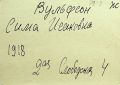 Вульфсон
Сима Исаковна
1918
Слободская 4